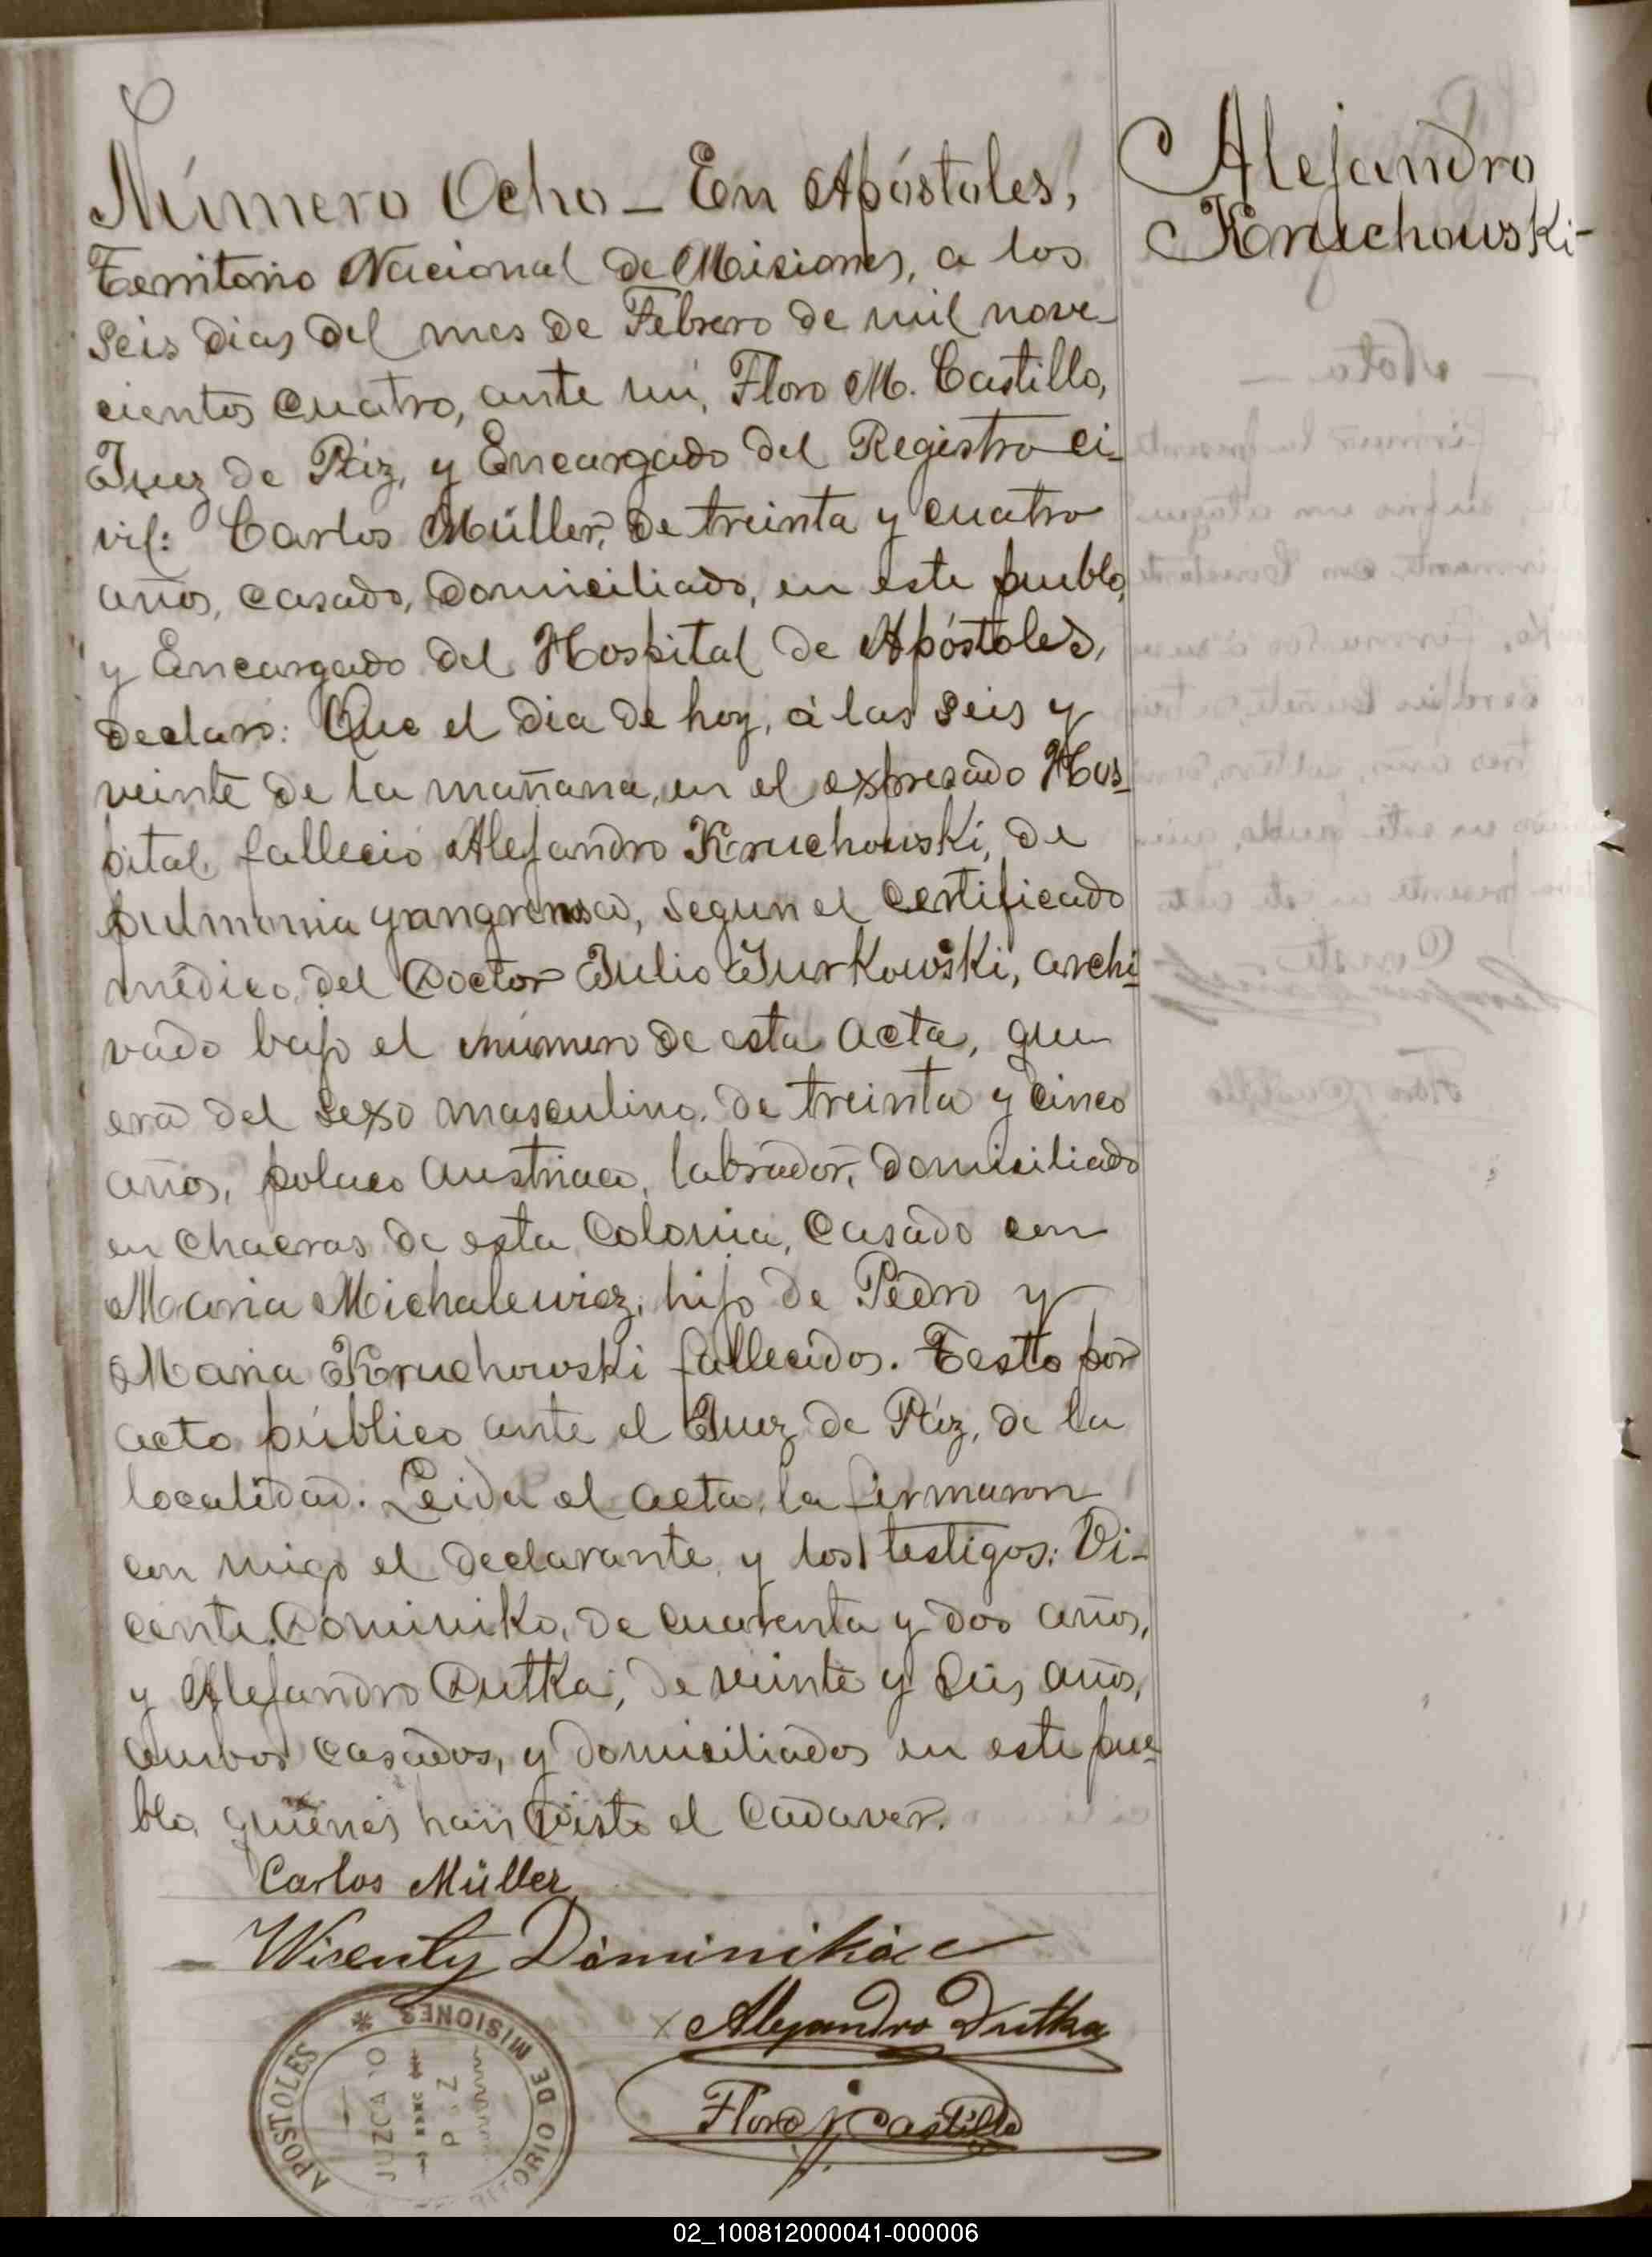 Alejandro
Kruchouski-
Número Ocho - En Apóstoles,
Territorio Nacional de Misiones, a los
seis dias del mes de Febrero de mil nove-
cientos cuatro, ante mí, Floro M. Castillo,
Juez de Páz, y Encargado del Registro ci-
vil: Carlos Müller, de treinta y cuatro
años, casado, domiciliado, en este pueblo,
y Encargado del Hospital de Apóstoles,
declaró: Que el dia de hoy, á las seis y
veinte de la mañana, en el expresado Hos-
pital, falleció Alejandro Kruchouski, de
pulmonia gangrenosa, segun el certificado
médico, del Doctor Julio Jurkowski, archi-
vado bajo el número de esta acta, que
era del sexo masculino, de treinta y cinco
años, polaco austriaco, labrador, domiciliado
en chacras de esta Colonia, casado con
Maria Michalewicz, hijo de Pedro y
Maria Kruchowski fallecidos. Testo por
acto público ante el Juez de Páz, de la
localidad. Leida el acta, la firmaron
con migo el declarante, y los testigos: Vi-
cente Dominiko, de cuarenta y dos años,
y Alejandro Dutka, de veinte y seis años,
ambos casados, y domiciliados en este pue-
blo, quienes han visto el cadaver.
Carlos Müller
Wicenty Dominikóc
x Alejandro Dutka
Floro M Castillo
APOSTOLES
JUZGADO
DE MISIONES *
02_100812000041-000006